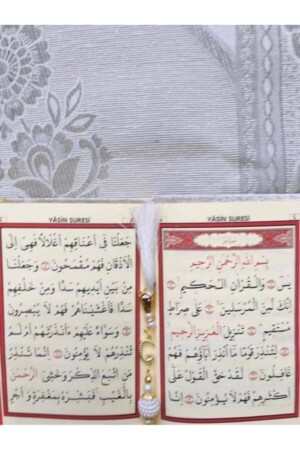 YÂSİN SURESİ
بِسْمِ اللّٰهِ الرَّحْمٰنِ الرَّحٖيمِ
يٰسٓ ۝ وَالْقُرْاٰنِ الْحَكٖيمِ ۝
اِنَّكَ لَمِنَ الْمُرْسَلٖينَ ۝ عَلٰى صِرَاطٍ
مُسْتَقٖيمٍ ۝ تَنْزٖيلَ الْعَزٖيزِ الرَّحٖيمِ ۝
لِتُنْذِرَ قَوْمًا مَٓا اُنْذِرَ اٰبَٓاؤُهُمْ فَهُمْ
غَافِلُونَ ۝ لَقَدْ حَقَّ الْقَوْلُ عَلٰٓى
اَكْثَرِهِمْ فَهُمْ لَا يُؤْمِنُونَ ۝ اِنَّا
YÂSİN SURESİ
جَعَلْنَا فٖٓى اَعْنَاقِهِمْ اَغْلَالًا فَهِىَ اِلَى
الْاَذْقَانِ فَهُمْ مُقْمَحُونَ ۝ وَجَعَلْنَا
مِنْ بَيْنِ اَيْدٖيهِمْ سَدًّا وَمِنْ خَلْفِهِمْ
سَدًّا فَاَغْشَيْنَاهُمْ فَهُمْ لَا يُبْصِرُونَ
۝ وَسَوَٓاءٌ عَلَيْهِمْ ءَاَنْذَرْتَهُمْ اَمْ لَمْ
تُنْذِرْهُمْ لَا يُؤْمِنُونَ ۝ اِنَّمَا تُنْذِرُ
مَنِ اتَّبَعَ الذِّكْرَ وَخَشِىَ الرَّحْمٰنَ
بِالْغَيْبِ فَبَشِّرْهُ بِمَغْفِرَةٍ وَاَجْرٍ